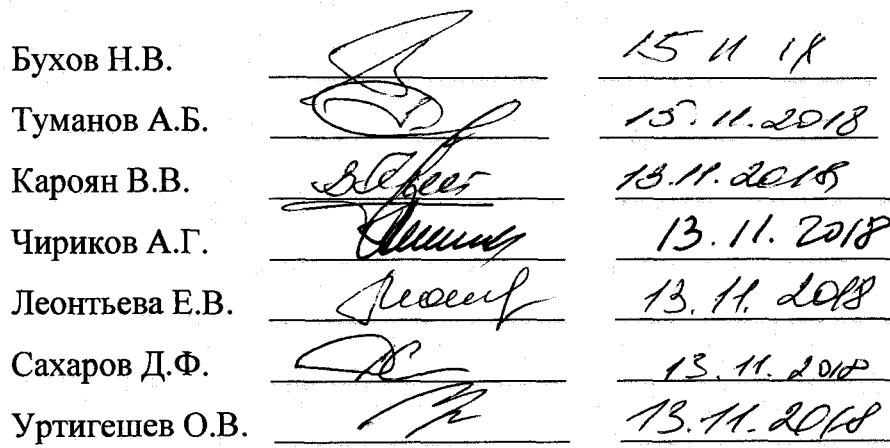 Бухов Н.В. 15 11 18
Туманов А.Б. 15.11.2018
Кароян В.В. 13.11.2018
Чириков А.Г. 13.11.2018
Леонтьева Е.В. 13.11.2018
Сахаров Д.Ф. 13.11.2018
Уртигешев О.В. 13.11.2018